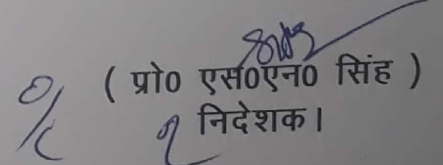 ( प्रो0 एस0एन0 सिंह )
निदेशक।